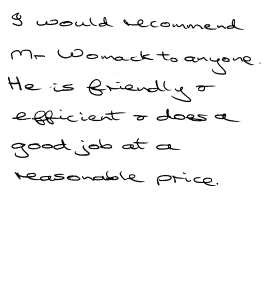 I would recommend
Mr Womack to anyone.
He is friendly &
efficient & does a
good job at a
reasonable price.